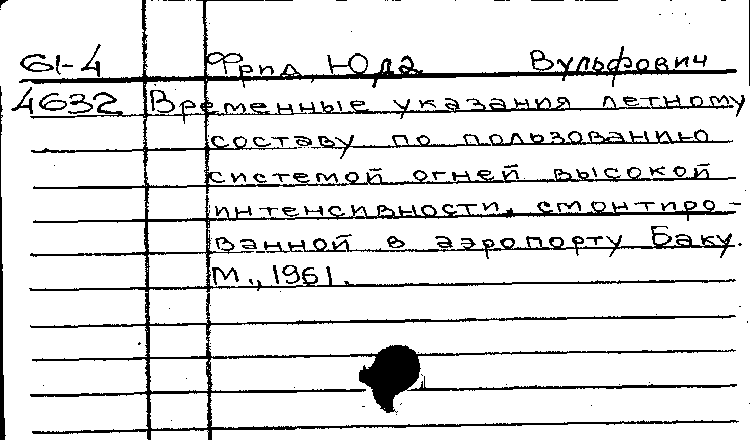 61-4 Фрид, Юда Вульфович
4632 Временные указания летному
составу по пользованию
системой огней высокой
интенсивности, смонтиро-
ванной в аэропорту Баку.
М., 1961.